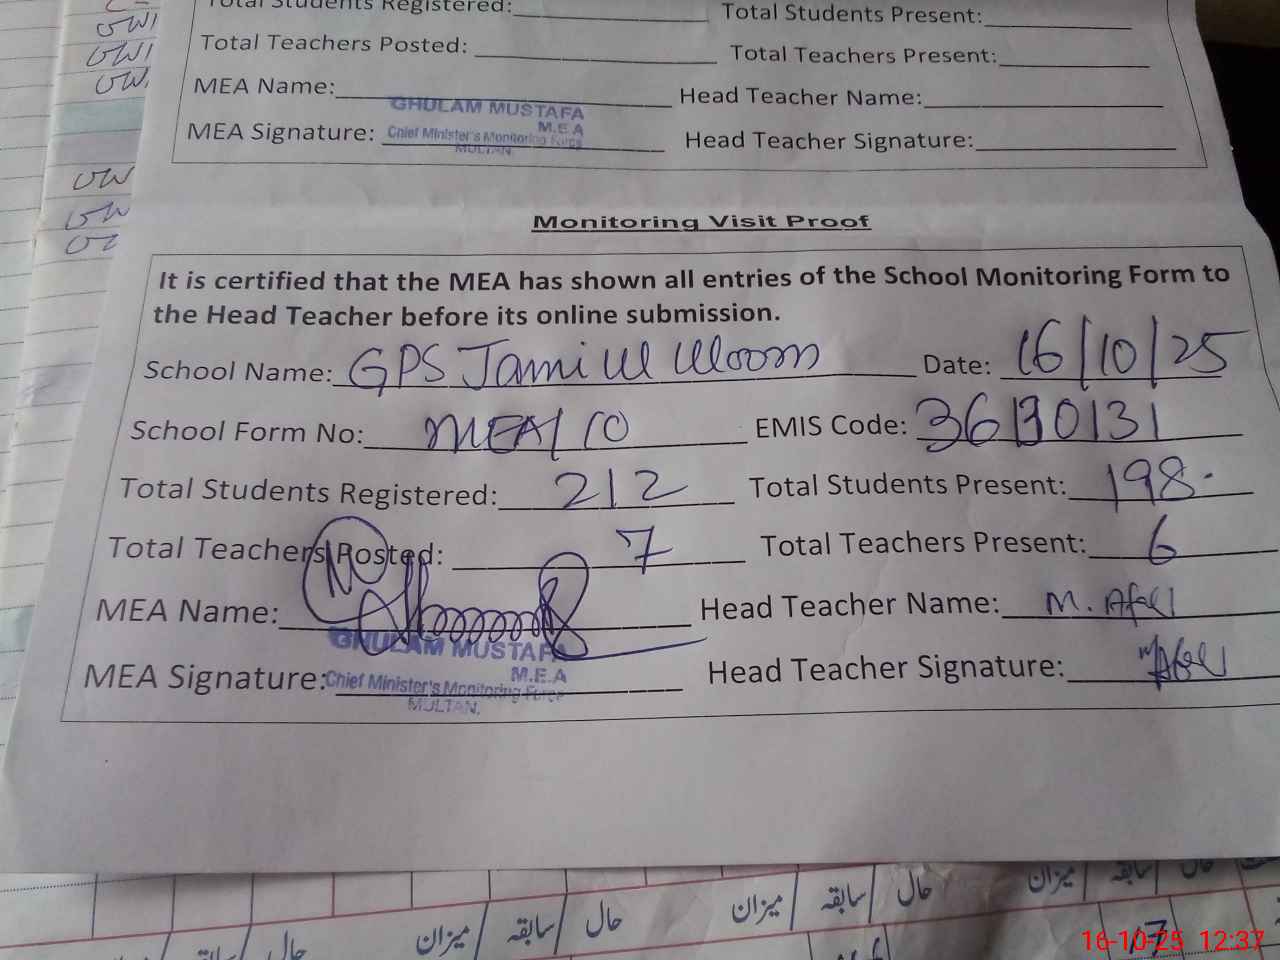 Total Students Registered: Total Students Present:
Total Teachers Posted: Total Teachers Present:
MEA Name: Head Teacher Name:
GHULAM MUSTAFA
M.E.A
MEA Signature: Chief Minister's Monitoring Force Head Teacher Signature:
MULTAN.
Monitoring Visit Proof
It is certified that the MEA has shown all entries of the School Monitoring Form to
the Head Teacher before its online submission.
School Name: GPS Jami ul uloom Date: 16/10/25
School Form No: MEA/10 EMIS Code: 36130131
Total Students Registered: 212 Total Students Present: 198
Total Teachers Posted: 7 Total Teachers Present: 6
MEA Name: Head Teacher Name: M. Afzal
GHULAM MUSTAFA
M.E.A
MEA Signature: Chief Minister's Monitoring Force Head Teacher Signature:
MULTAN.
حال سابقہ میزان حال سابقہ میزان حال سابقہ میزان حال سابقہ
17
16-10-25 12:37